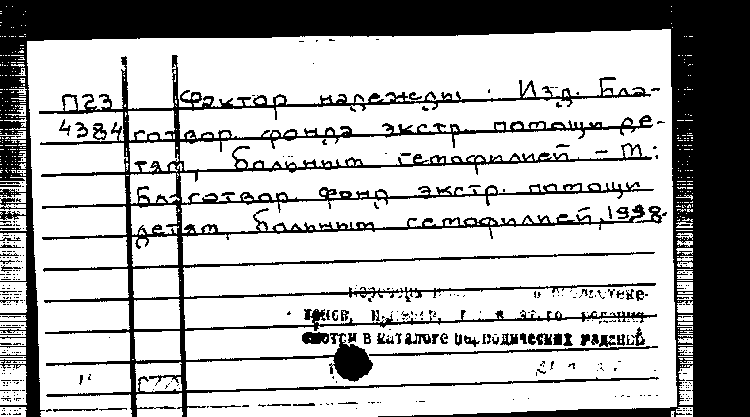 П23 Фактор надежды : Изд. Бла-
4384 готвор. фонда экстр. помощи де-
тям, больным гемофилией. – М.:
Благотвор. фонд экстр. помощи
детям, больным гемофилией, 1998-
издания
смотри в каталоге периодических изданий